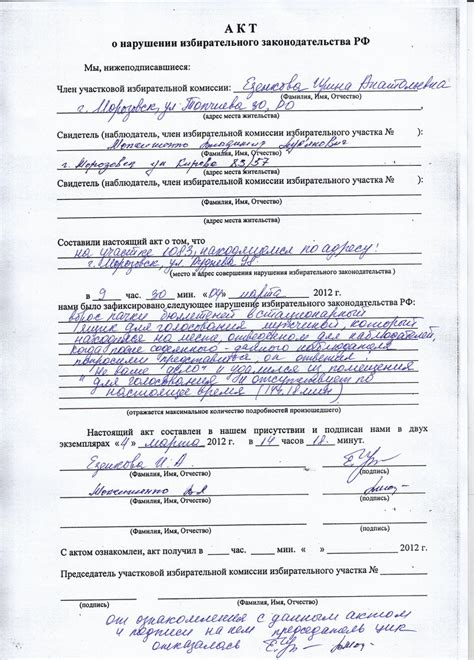 АКТ
о нарушении избирательного законодательства РФ
Мы, нижеподписавшиеся:
Член участковой избирательной комиссии: Езенкова Ирина Анатольевна
(Фамилия, Имя, Отчество)
г. Морозовск, ул Топчиева 30, РО
(адрес места жительства)
Свидетель (наблюдатель, член избирательной комиссии избирательного участка № ):
Владимир
(Фамилия, Имя, Отчество)
г. Морозовск ул Кирова 83/57
(адрес места жительства)
Свидетель (наблюдатель, член избирательной комиссии избирательного участка № ):
(Фамилия, Имя, Отчество)
(адрес места жительства)
Составили настоящий акт о том, что
на участке 1083, находящимся по адресу:
г. Морозовск, ул 98.
(место и адрес совершения нарушения избирательного законодательства )
в 9 час. 30 мин. «04» марта 2012 г.
нами было зафиксировано следующее нарушение избирательного законодательства РФ:
вброс пачки бюллетеней в стационарный
ящик для голосования, мужчиной, который
находился на месте, отведенном для наблюдателей,
когда после
попросили представиться, он ответил:
"Не ваше дело" и удалился из помещения
для голосования и отсутствует по
настоящее время (14ч. 18 мин)
(отражается максимальное количество подробностей произошедшего)
Настоящий акт составлен в нашем присутствии и подписан нами в двух
экземплярах «4» марта 2012 г. в 14 часов 18 минут.
Езенкова И. А.
(Фамилия, Имя, Отчество) (подпись)
(Фамилия, Имя, Отчество) (подпись)
(Фамилия, Имя, Отчество) (подпись)
С актом ознакомлен, акт получил в час. мин. « » 2012 г.
Председатель участковой избирательной комиссии избирательного участка №
(подпись) (Фамилия, Имя, Отчество)
от ознакомления с данным актом
и подписи на нем председатель
отказалась